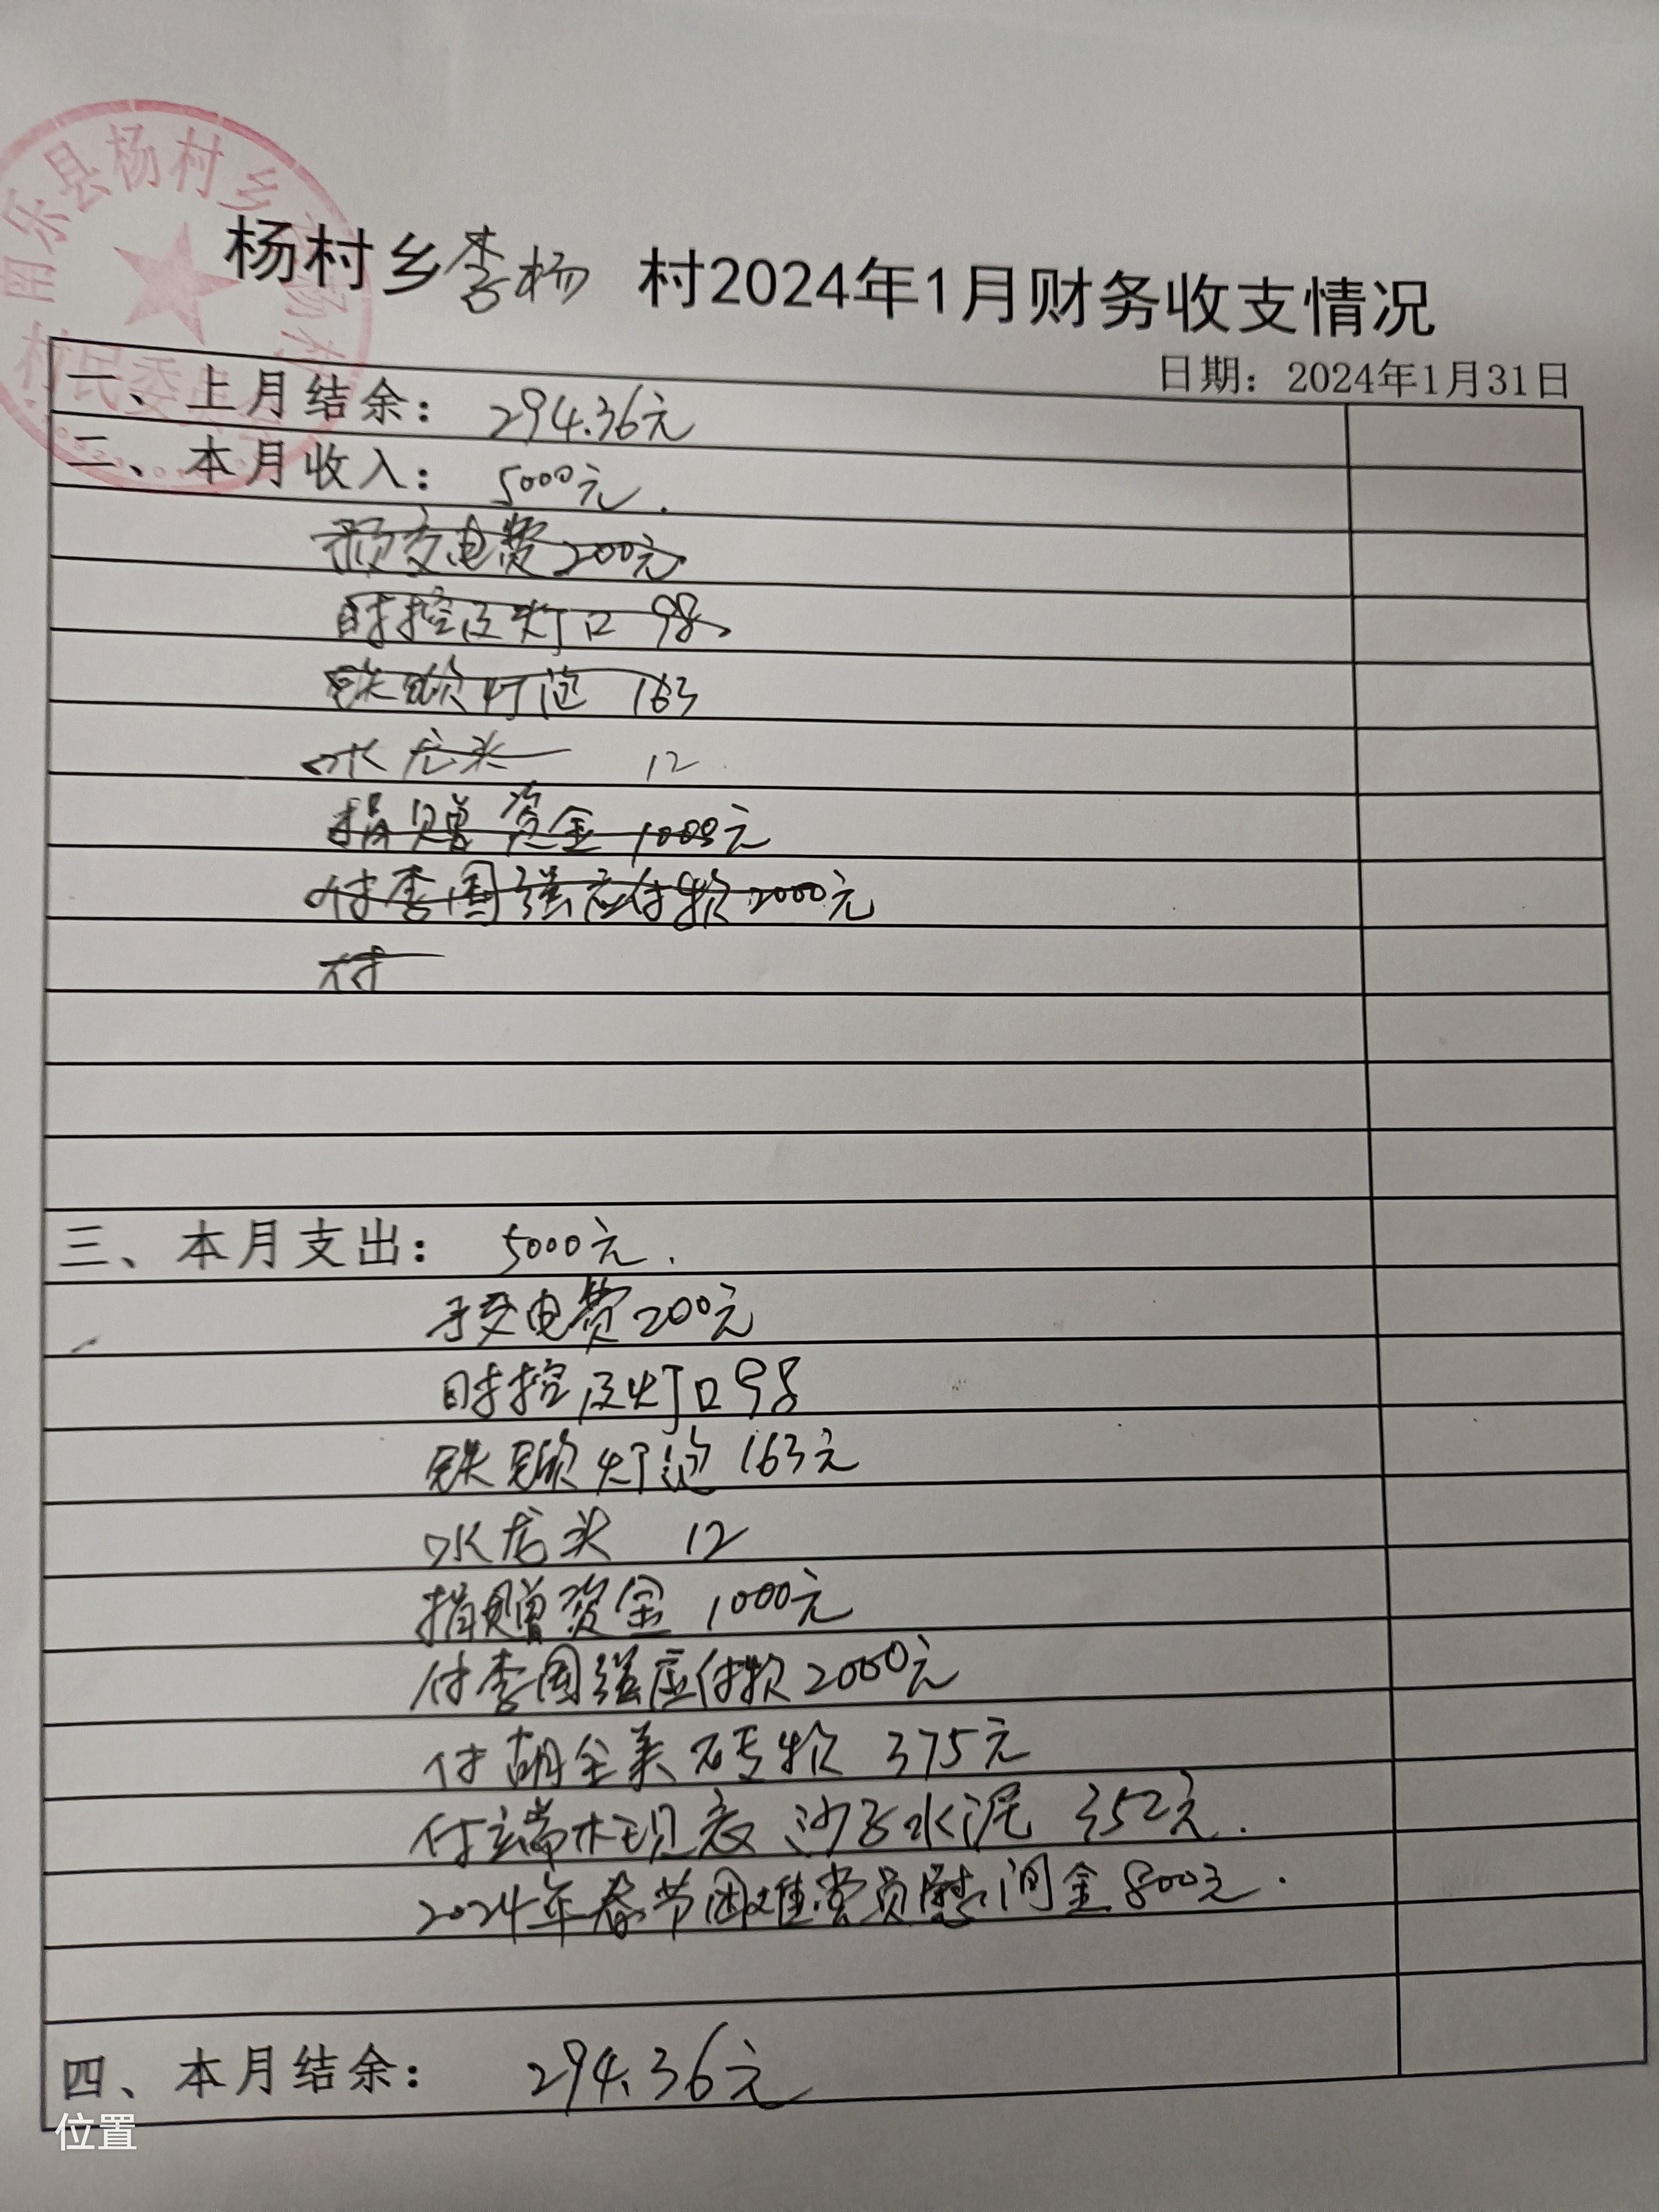 南乐县杨村乡
村民委
杨村乡李杨 村2024年1月财务收支情况
日期：2024年1月31日
一、上月结余： 294.36元
二、本月收入： 5000元.
预交电费200元
时控及灯口 98
灯泡 163
水龙头 12
捐赠资金 1000元
付李国强应付款2000元
付
三、本月支出： 5000元.
预交电费200元
时控及灯口98
灯泡 163元
水龙头 12
捐赠资金 1000元
付李国强应付款2000元
付胡全美砖款 375元
付端木现 沙子水泥 352元.
2024年春节困难党员慰问金800元.
四、本月结余： 294.36元
位置